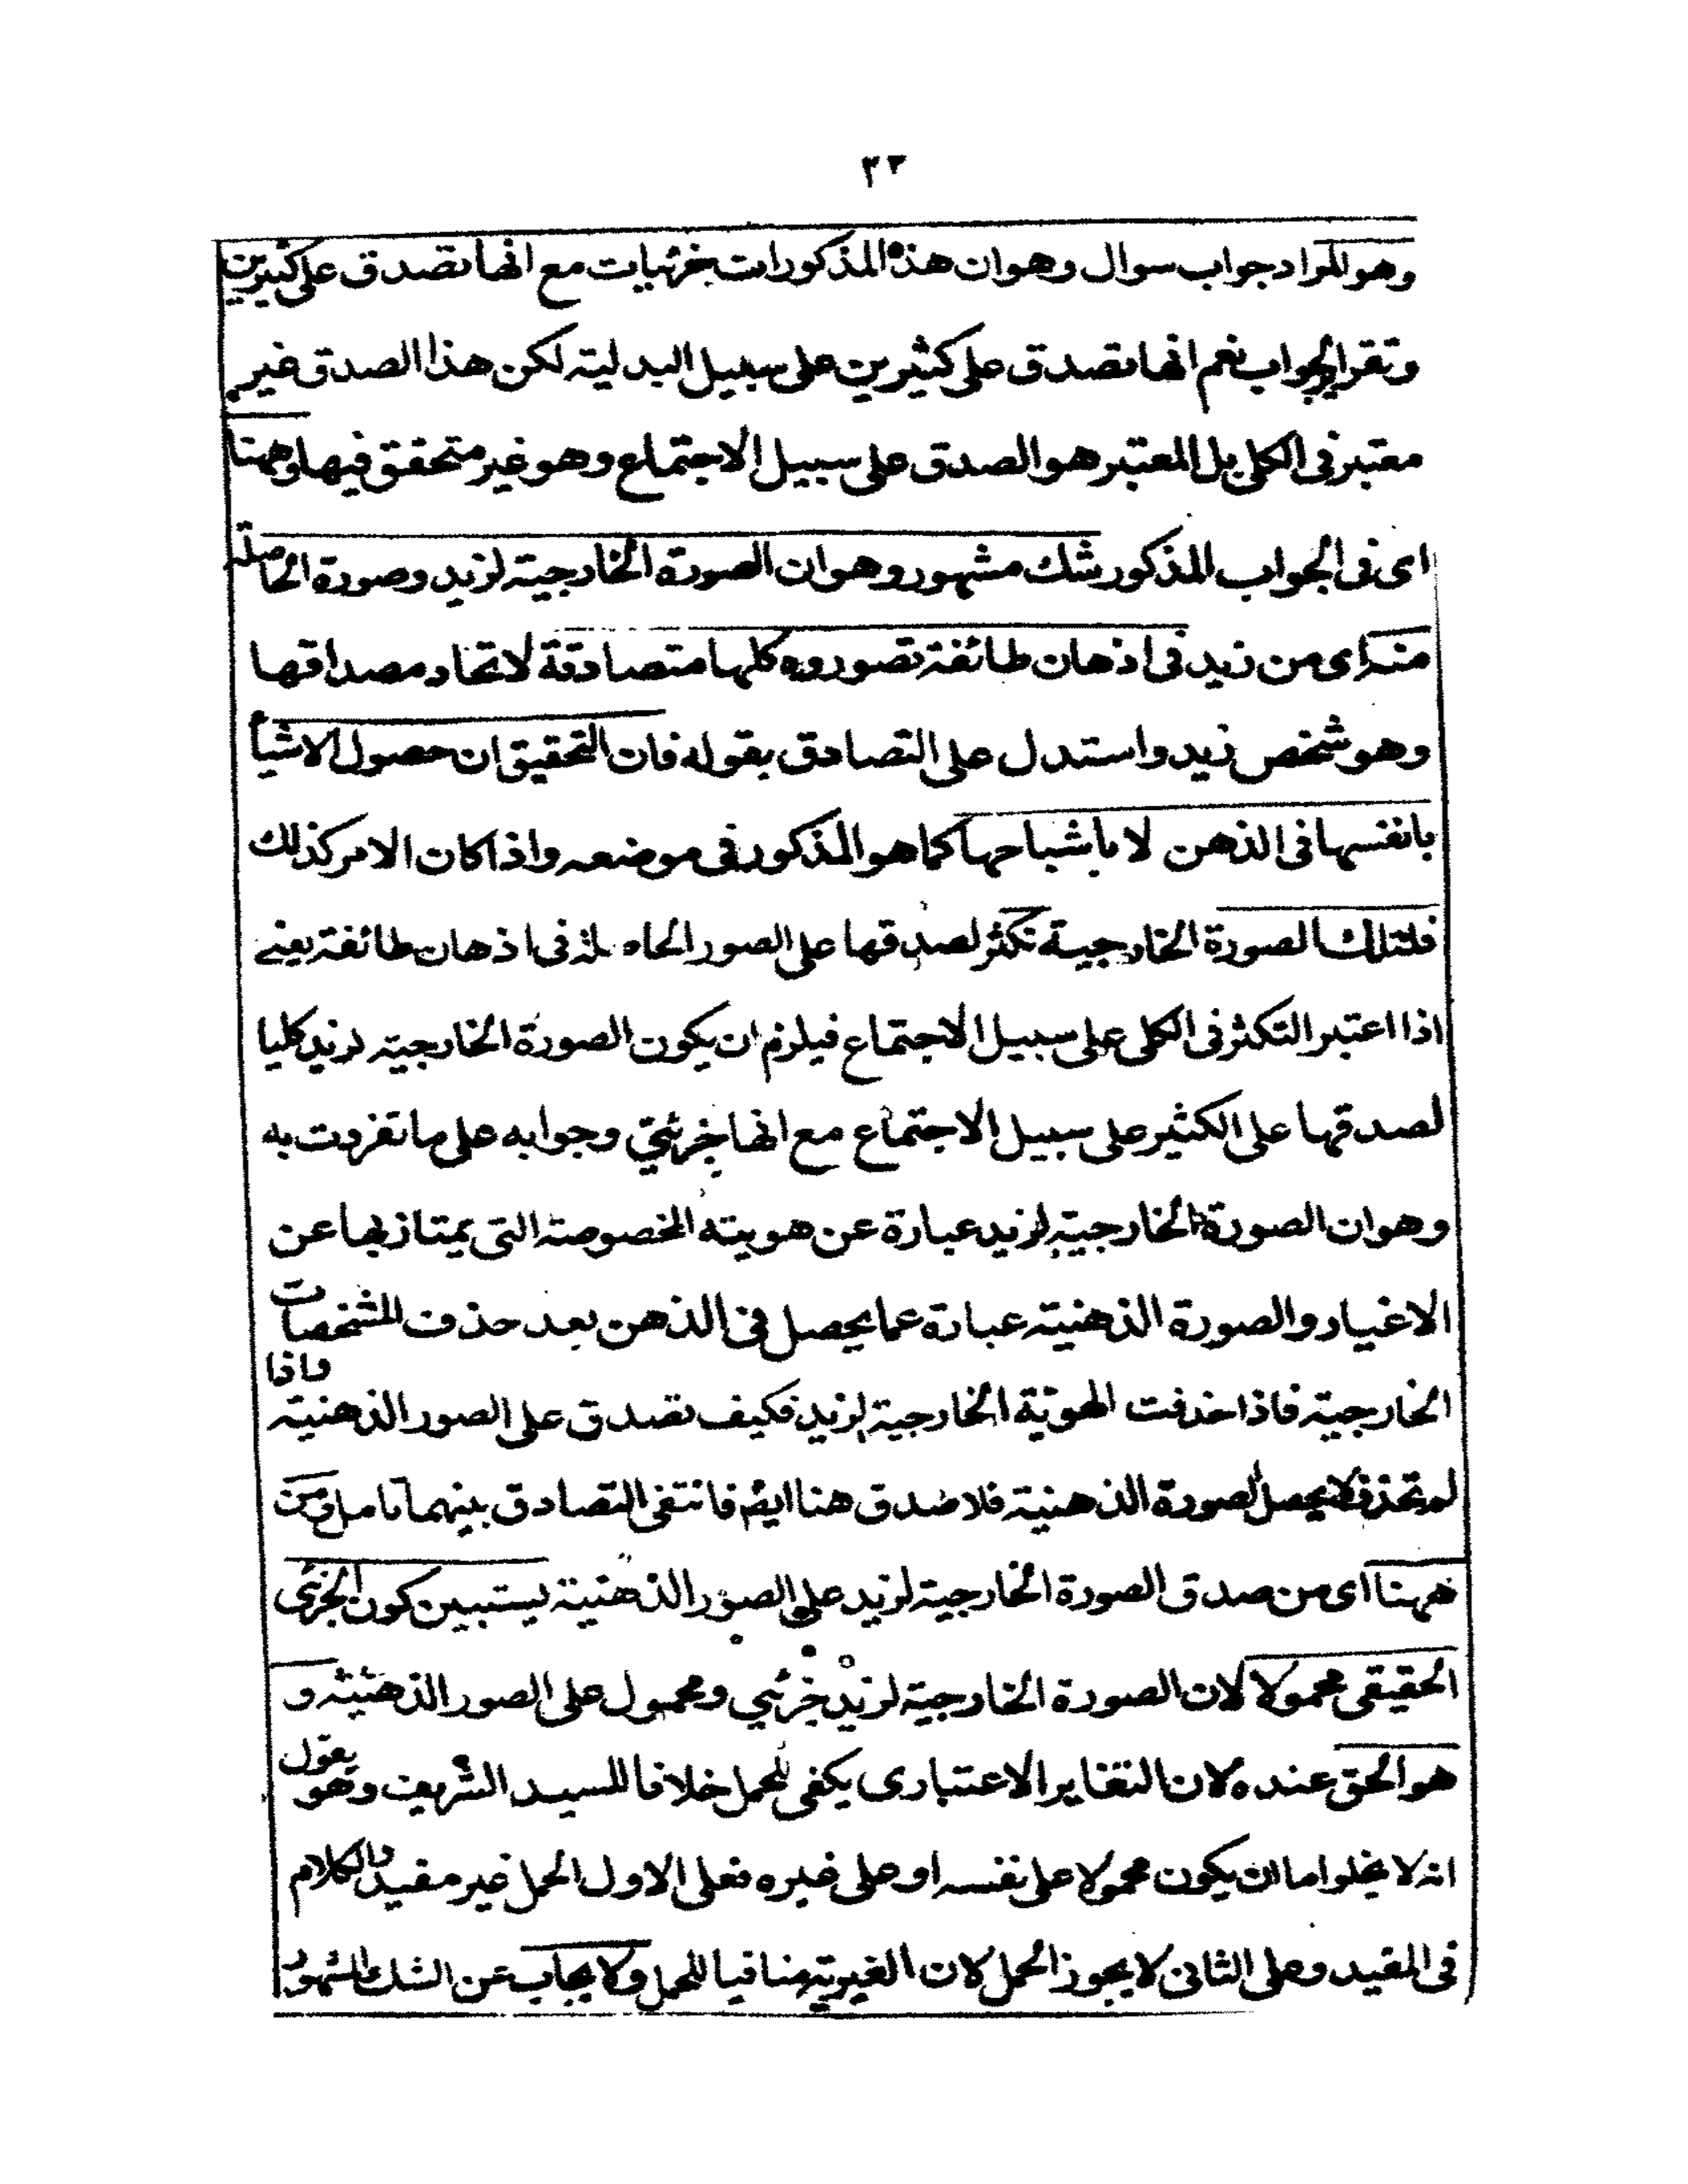 ٣٣
وهو المراد جواب سوال وهو ان هذه المذكورات جزئيات مع انها تصدق على كثيرين
وتقرير الجواب نعم انها تصدق على كثيرين على سبيل البدلية لكن هذا الصدق غير
معتبر فى الكلى بل المعتبر هو الصدق على سبيل الاجتماع وهو غير متحقق فيها وههنا
اى فى الجواب المذكور شك مشهور وهو ان الصورة الخارجية لزيد وصورة الحاصلة
منه اى من زيد فى اذهان طائفة تصوروه كلها متصادقة لاتحاد مصداقها
وهو شخص زيد واستدل على التصادق بقوله فان التحقيق ان حصول الاشياء
بانفسها فى الذهن لا باشباحها كما هو المذكور فى موضعه واذا كان الامر كذلك
فلتلك الصورة الخارجية تكثر لصدقها على الصور الحاصلة فى اذهان طائفة يعنے
اذا اعتبر التكثر فى الكلى على سبيل الاجتماع فيلزم ان يكون الصورة الخارجية لزيد كليا
لصدقها على الكثير على سبيل الاجتماع مع انها جزئي وجوابه على ما تفردت به
وهو ان الصورة الخارجية لزيد عبارة عن هويته المخصوصة التى يمتاز بها عن
الاغيار والصورة الذهنية عبارة عما يحصل فى الذهن بعد حذف المشخصات
الخارجية فاذا حذفت الهوية الخارجية لزيد فكيف تصدق على الصور الذهنية واذا
لم تحذف لا يحصل الصورة الذهنية فلا صدق هنا ايضا فانتفى التصادق بينهما تامل ومن
ههنا اى من صدق الصورة الخارجية لزيد على الصور الذهنية يستبين كون الجزئى
الحقيقى محمولا لان الصورة الخارجية لزيد جزئي ومحمول على الصور الذهنية و
هو الحق عنده لان التغاير الاعتبارى يكفى للحمل خلافا للسيد الشريف وهو يقول
انه لا يخلوا ما ان يكون محمولا على نفسه او على غيره فعلى الاول الحمل غير مفيد والكلام
فى المفيد وعلى الثانى لا يجوز الحمل لان الغيرية منافيا للحمل ولا يجاب عن الشك المشهور